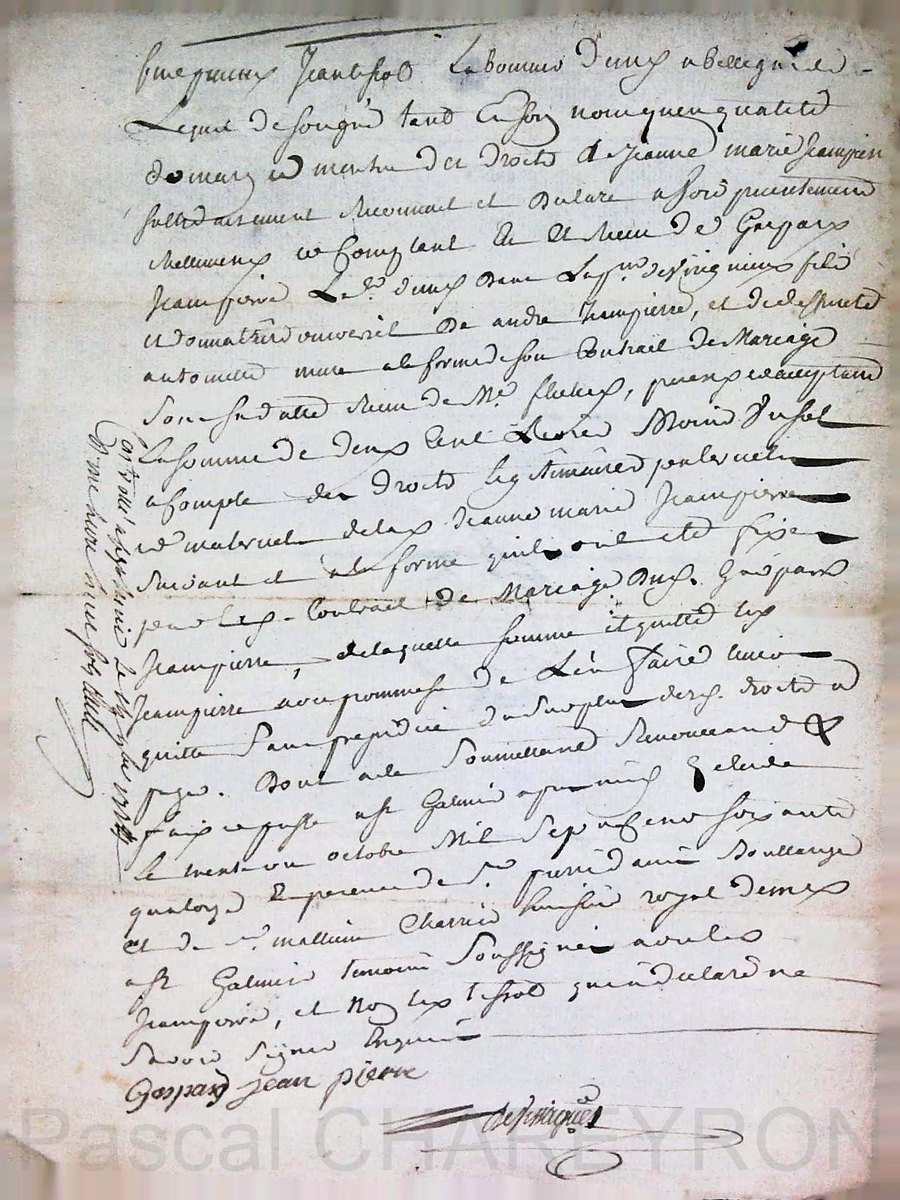 fut present Jean tissot Laboureur demt a bellegarde
Lequel de son gré tant en son nom qu'en qualité
de mary et maitre des droits de Jeanne marie Jeanpierre
sollidairement Reconnait et Declare avoir presentement
Reellement et Comptant Eu et Recu de Gaspard
Jeanpierre Lr demt dans La psse de
et donnataire universel de andre Jeanpierre, et de deffunte
antoinette mure a la forme de son Contrait de Mariage
Recu de Me present et acceptant
La somme de deux Cent Livres Moins Un sol
a Compte des droits Legitimaires paternels
et maternels de lad Jeanne marie Jeanpierre
suivant et a la forme quils ont eté fixes
par led. Contrait de Mariage dud. Gaspard
Jeanpierre, de laquelle somme il quitte led
Jeanpierre avec promesse de L'en faire tenir
quitte sans prejudice du surplus desd. droits et
Dont acte Soumettant Renonceant &
fait et passé a st Galmier apres midy
le trente un octobre Mil Sept Cent soixante
quatorze En presence de sr pierre Boullanger
et de sr mathieu Charrier huissier royal demt
a st Galmier temoins Soussignés avec led
Jeanpierre, et Non led tissot qui a declaré ne
Savoir Signer Enquis
Gaspard jean pierre
Controllé a st galmier le 9bre 1774
Pascal CHAREYRON